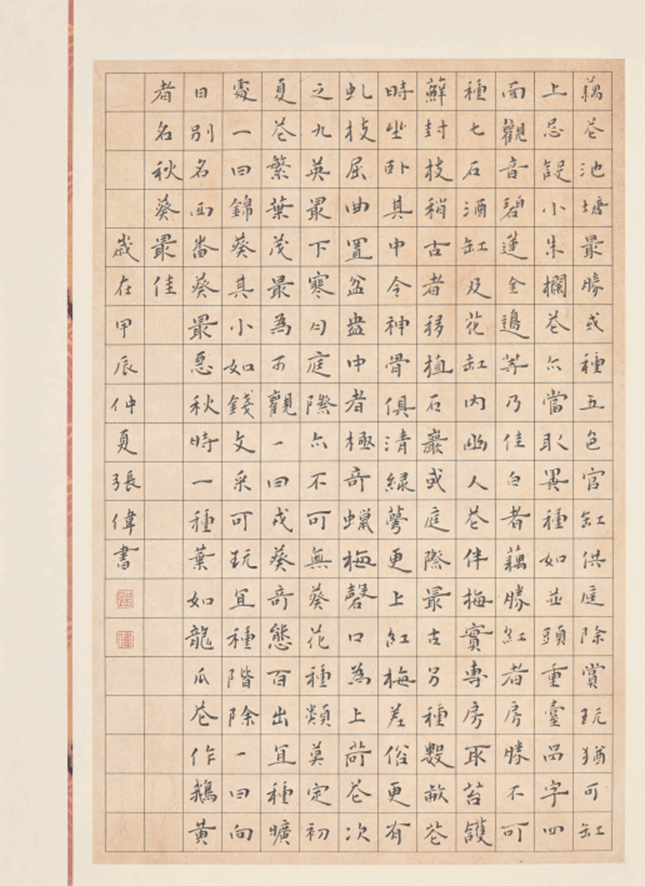 藕花池塘最勝或種五色官缸供庭除賞玩猶可缸
上忌設小朱欄花亦當取異種如並頭重臺品字四
面觀音碧蓮金邊等乃佳白者藕勝紅者房勝不可
種七石酒缸及花缸內幽人花伴梅實專房取苔護
蘚封枝稍古者移植石巖或庭際最古另種數畝花
時坐臥其中令神骨俱清綠萼更上紅梅差俗更有
虬枝屈曲置盆盎中者極奇蠟梅磬口為上荷花次
之九英最下寒月庭際亦不可無葵花種類莫定初
夏花繁葉茂最為可觀一曰戎葵奇態百出宜種曠
處一曰錦葵其小如錢文采可玩宜種階除一曰向
日別名西番葵最惡秋時一種葉如龍爪花作鵝黃
者名秋葵最佳
歲在甲辰仲夏張偉書